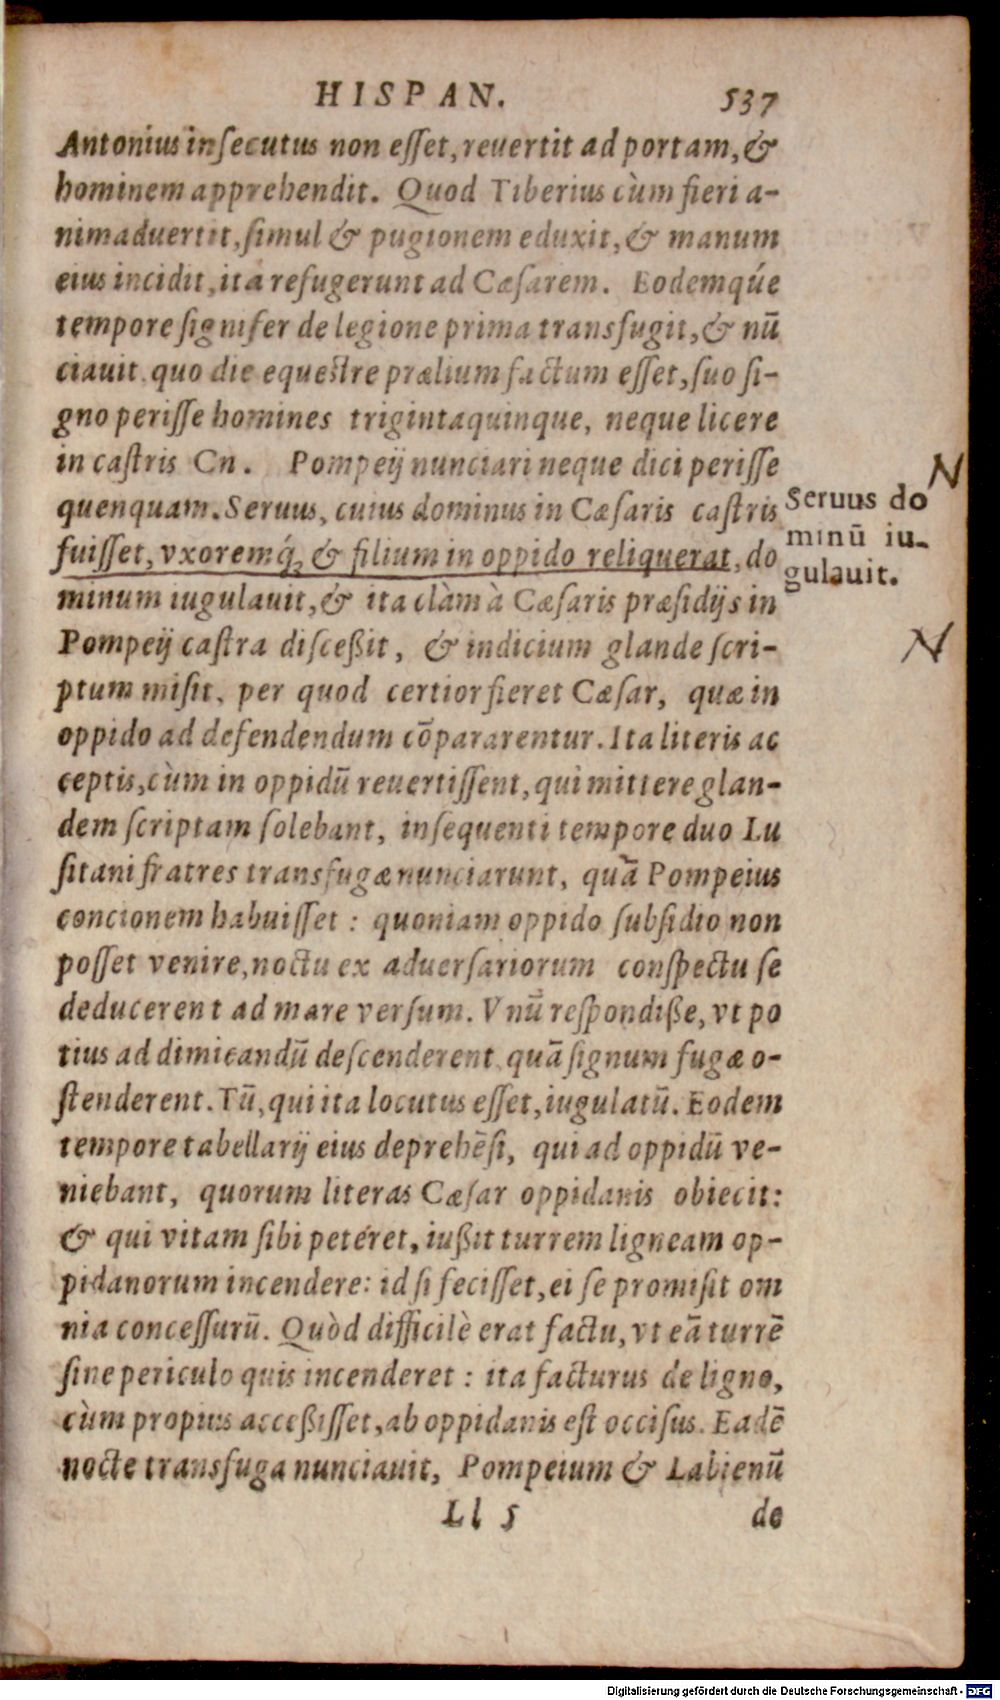 HISPAN. 537
Antonius insecutus non esset, reuertit ad portam, &
hominem apprehendit. Quod Tiberius cùm fieri a-
nimaduertit, simul & pugionem eduxit, & manum
eius incidit, ita refugerunt ad Cæsarem. Eodemq́ue
tempore signifer de legione prima transfugit, & nū
ciauit, quo die equestre prælium factum esset, suo si-
gno perisse homines trigintaquinque, neque licere
in castris Cn. Pompeij nunciari neque dici perisse
quenquam. Seruus, cuius dominus in Cæsaris castris
fuisset, vxoremq́; & filium in oppido reliquerat, do
minum iugulauit, & ita clàm à Cæsaris præsidijs in
Pompeij castra disceßit, & indicium glande scri-
ptum misit, per quod certior fieret Cæsar, quæ in
oppido ad defendendum cōpararentur. Ita literis ac
ceptis, cùm in oppidū reuertissent, qui mittere glan-
dem scriptam solebant, insequenti tempore duo Lu
sitani fratres transfugæ nunciarunt, quā Pompeius
concionem habuisset: quoniam oppido subsidio non
posset venire, noctu ex aduersariorum conspectu se
deducerent ad mare versum. Vnū respondiße, vt po
tius ad dimicandū descenderent, quā signum fugæ o-
stenderent. Tū, qui ita locutus esset, iugulatū. Eodem
tempore tabellarij eius deprehēsi, qui ad oppidū ve-
niebant, quorum literas Cæsar oppidanis obiecit:
& qui vitam sibi petéret, iußit turrem ligneam op-
pidanorum incendere: id si fecisset, ei se promisit om
nia concessurū. Quòd difficilè erat factu, vt eā turrē
sine periculo quis incenderet: ita facturus de ligno,
cùm propius acceßisset, ab oppidanis est occisus. Eadē
nocte transfuga nunciauit, Pompeium & Labienū
Ll 5 de
N
Seruus do
minū iu-
gulauit.
N
Digitalisierung gefördert durch die Deutsche Forschungsgemeinschaft - DFG